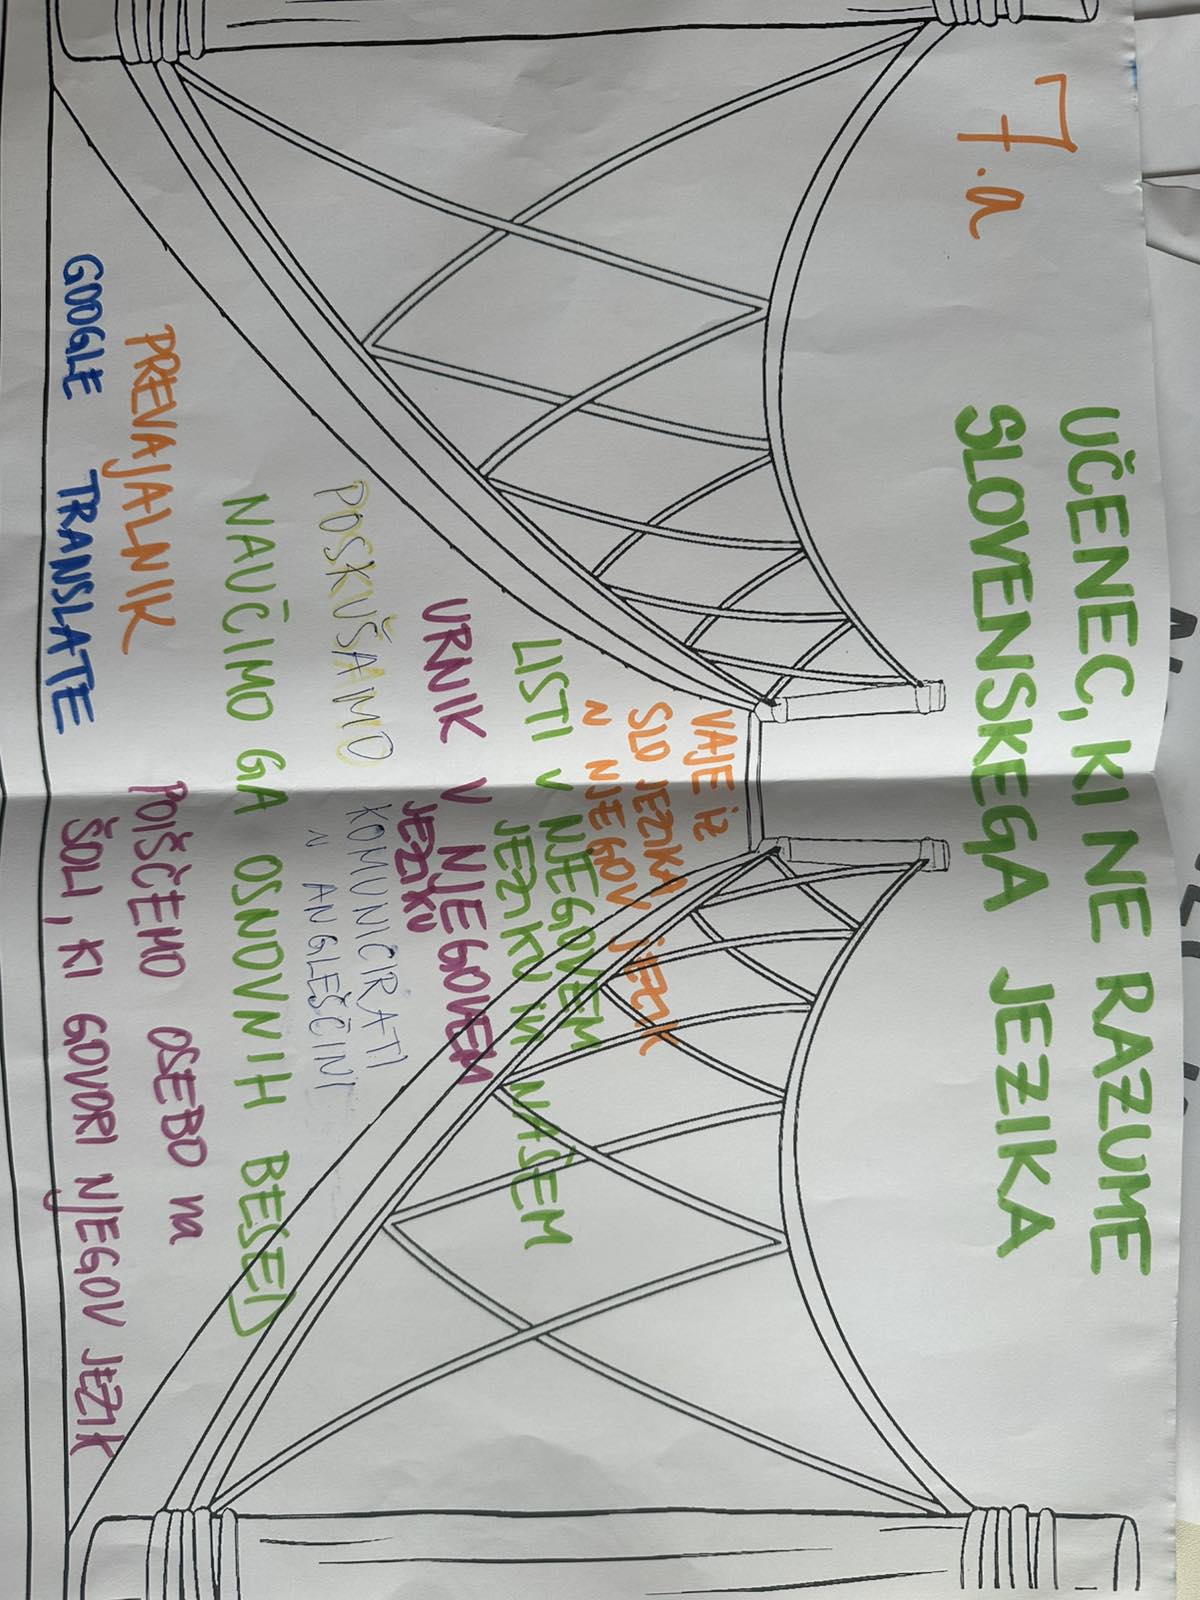 7.a
UČENEC, KI NE RAZUME
SLOVENSKEGA JEZIKA
VAJE iz
SLO JEZIKA
N NJEGOV JEZIK
LISTI V NJEGOVEM
JEZIKU in NAŠEM
URNIK V NJEGOVEM
JEZIKU
POSKUŠAMO KOMUNICIRATI
N ANGLEŠČINI
NAUČIMO GA OSNOVNIH BESED
PREVAJALNIK
GOOGLE TRANSLATE
POIŠČEMO OSEBO na
ŠOLI, KI GOVORI NJEGOV JEZIK